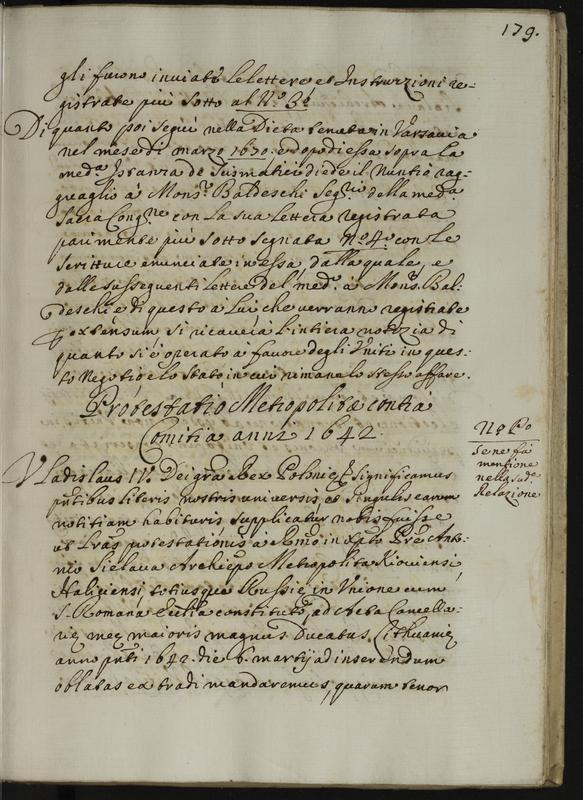 179.
gli furono inviate le lettere et Instruzzioni re=
gistrate più sotto al N.º 3º
Di quanto poi seguì nella Dieta tenuta in Varsavia
nel mese di marzo 1670. e dopo di essa sopra la
med.ª Istanza de Scismatici diede il Nuntio rag=
guaglio à Mons.r Baldeschi Seg.rio della med.ª
Sacra Cong.ne con la sua lettera registrata
parimente più sotto segnata N.º 4.º con le
scritture enunciate in essa, dalla quale, e
dalle susseguenti lettere del med.º à Mons.r Bal=
deschi e di questo à lui che verranno registrate
extensum si ricaverà l'intiera notizia di
quanto si è operato à favore degli Uniti in ques=
to Negotio e lo stato in cui rimane lo stesso affare.
Protestatio Metropolitæ contra
Comitia anni 1642.
N.º P.º
Se ne fà
mentione
nella sud.ª
Relazione
Vladislaus IV. Dei grã Rex Polonię &. Significamus
pñtibus literis nostris universis et singulis earum
notitiam habituris supplicatum nobis fuisse
ut Lrãs protestationis à Rmo in Xpto Pre Anto=
nio Sielava Archiepo Metropolita Kioviensi,
Haliciensi, totiusque Russię in Unione cum
S. Romana Ecclia constituto, ad Acta Cancella=
rię męę maioris magnus Ducatus Lithuanię
anno pñti 1642. die 6. martij ad inserendum
oblatas ex tradi mandaremus, quarum tenor